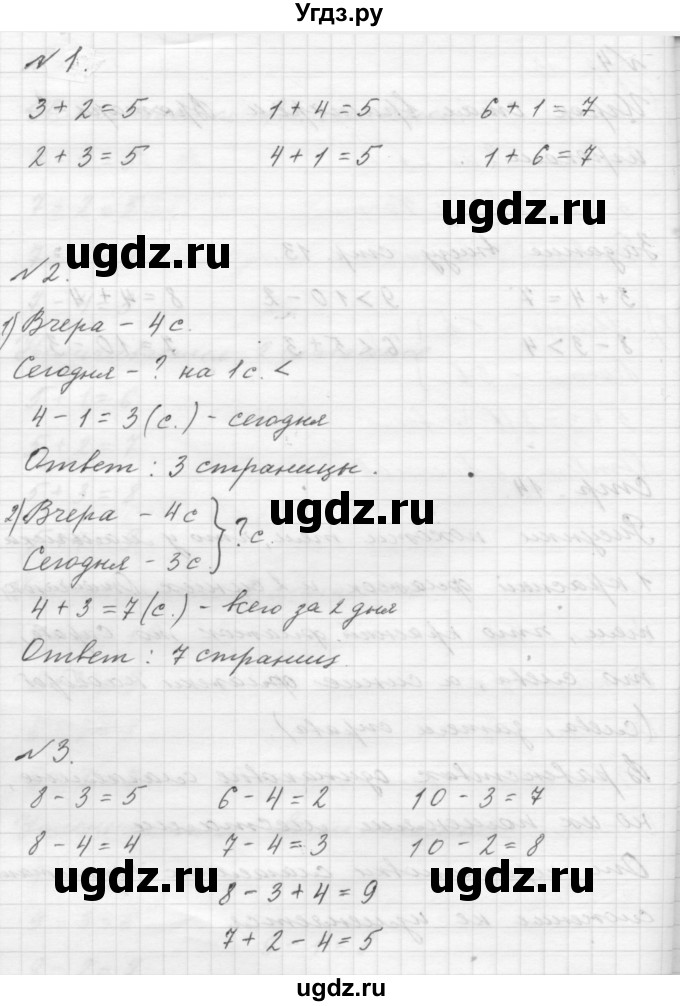 Угdz.ру
№1.
3 + 2 = 5 1 + 4 = 5 6 + 1 = 7
2 + 3 = 5 4 + 1 = 5 1 + 6 = 7
ugdz.ru
ugdz.ru
№2.
1) Вчера - 4с.
Сегодня - ? на 1с. <
4 - 1 = 3 (с.) - сегодня
Ответ: 3 страницы.
2) Вчера - 4с } ? с.
ugdz.ru
Сегодня - 3с.
4 + 3 = 7 (с.) - всего за 2 дня
Ответ: 7 страниц.
№3.
8 - 3 = 5 6 - 4 = 2 10 - 3 = 7
8 - 4 = 4 7 - 4 = 3 10 - 2 = 8
ugdz.ru ugdz.ru
8 - 3 + 4 = 9
7 + 2 - 4 = 5
ugdz.ru